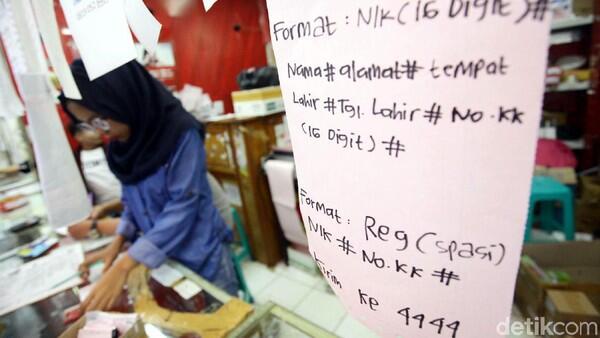 Format : NIK (16 Digit) #
Nama # alamat # tempat
Lahir # Tgl. Lahir # No. KK
(16 Digit) #
Format : Reg (spasi)
NIK # No. KK #
Kirim ke 4444
detikcom